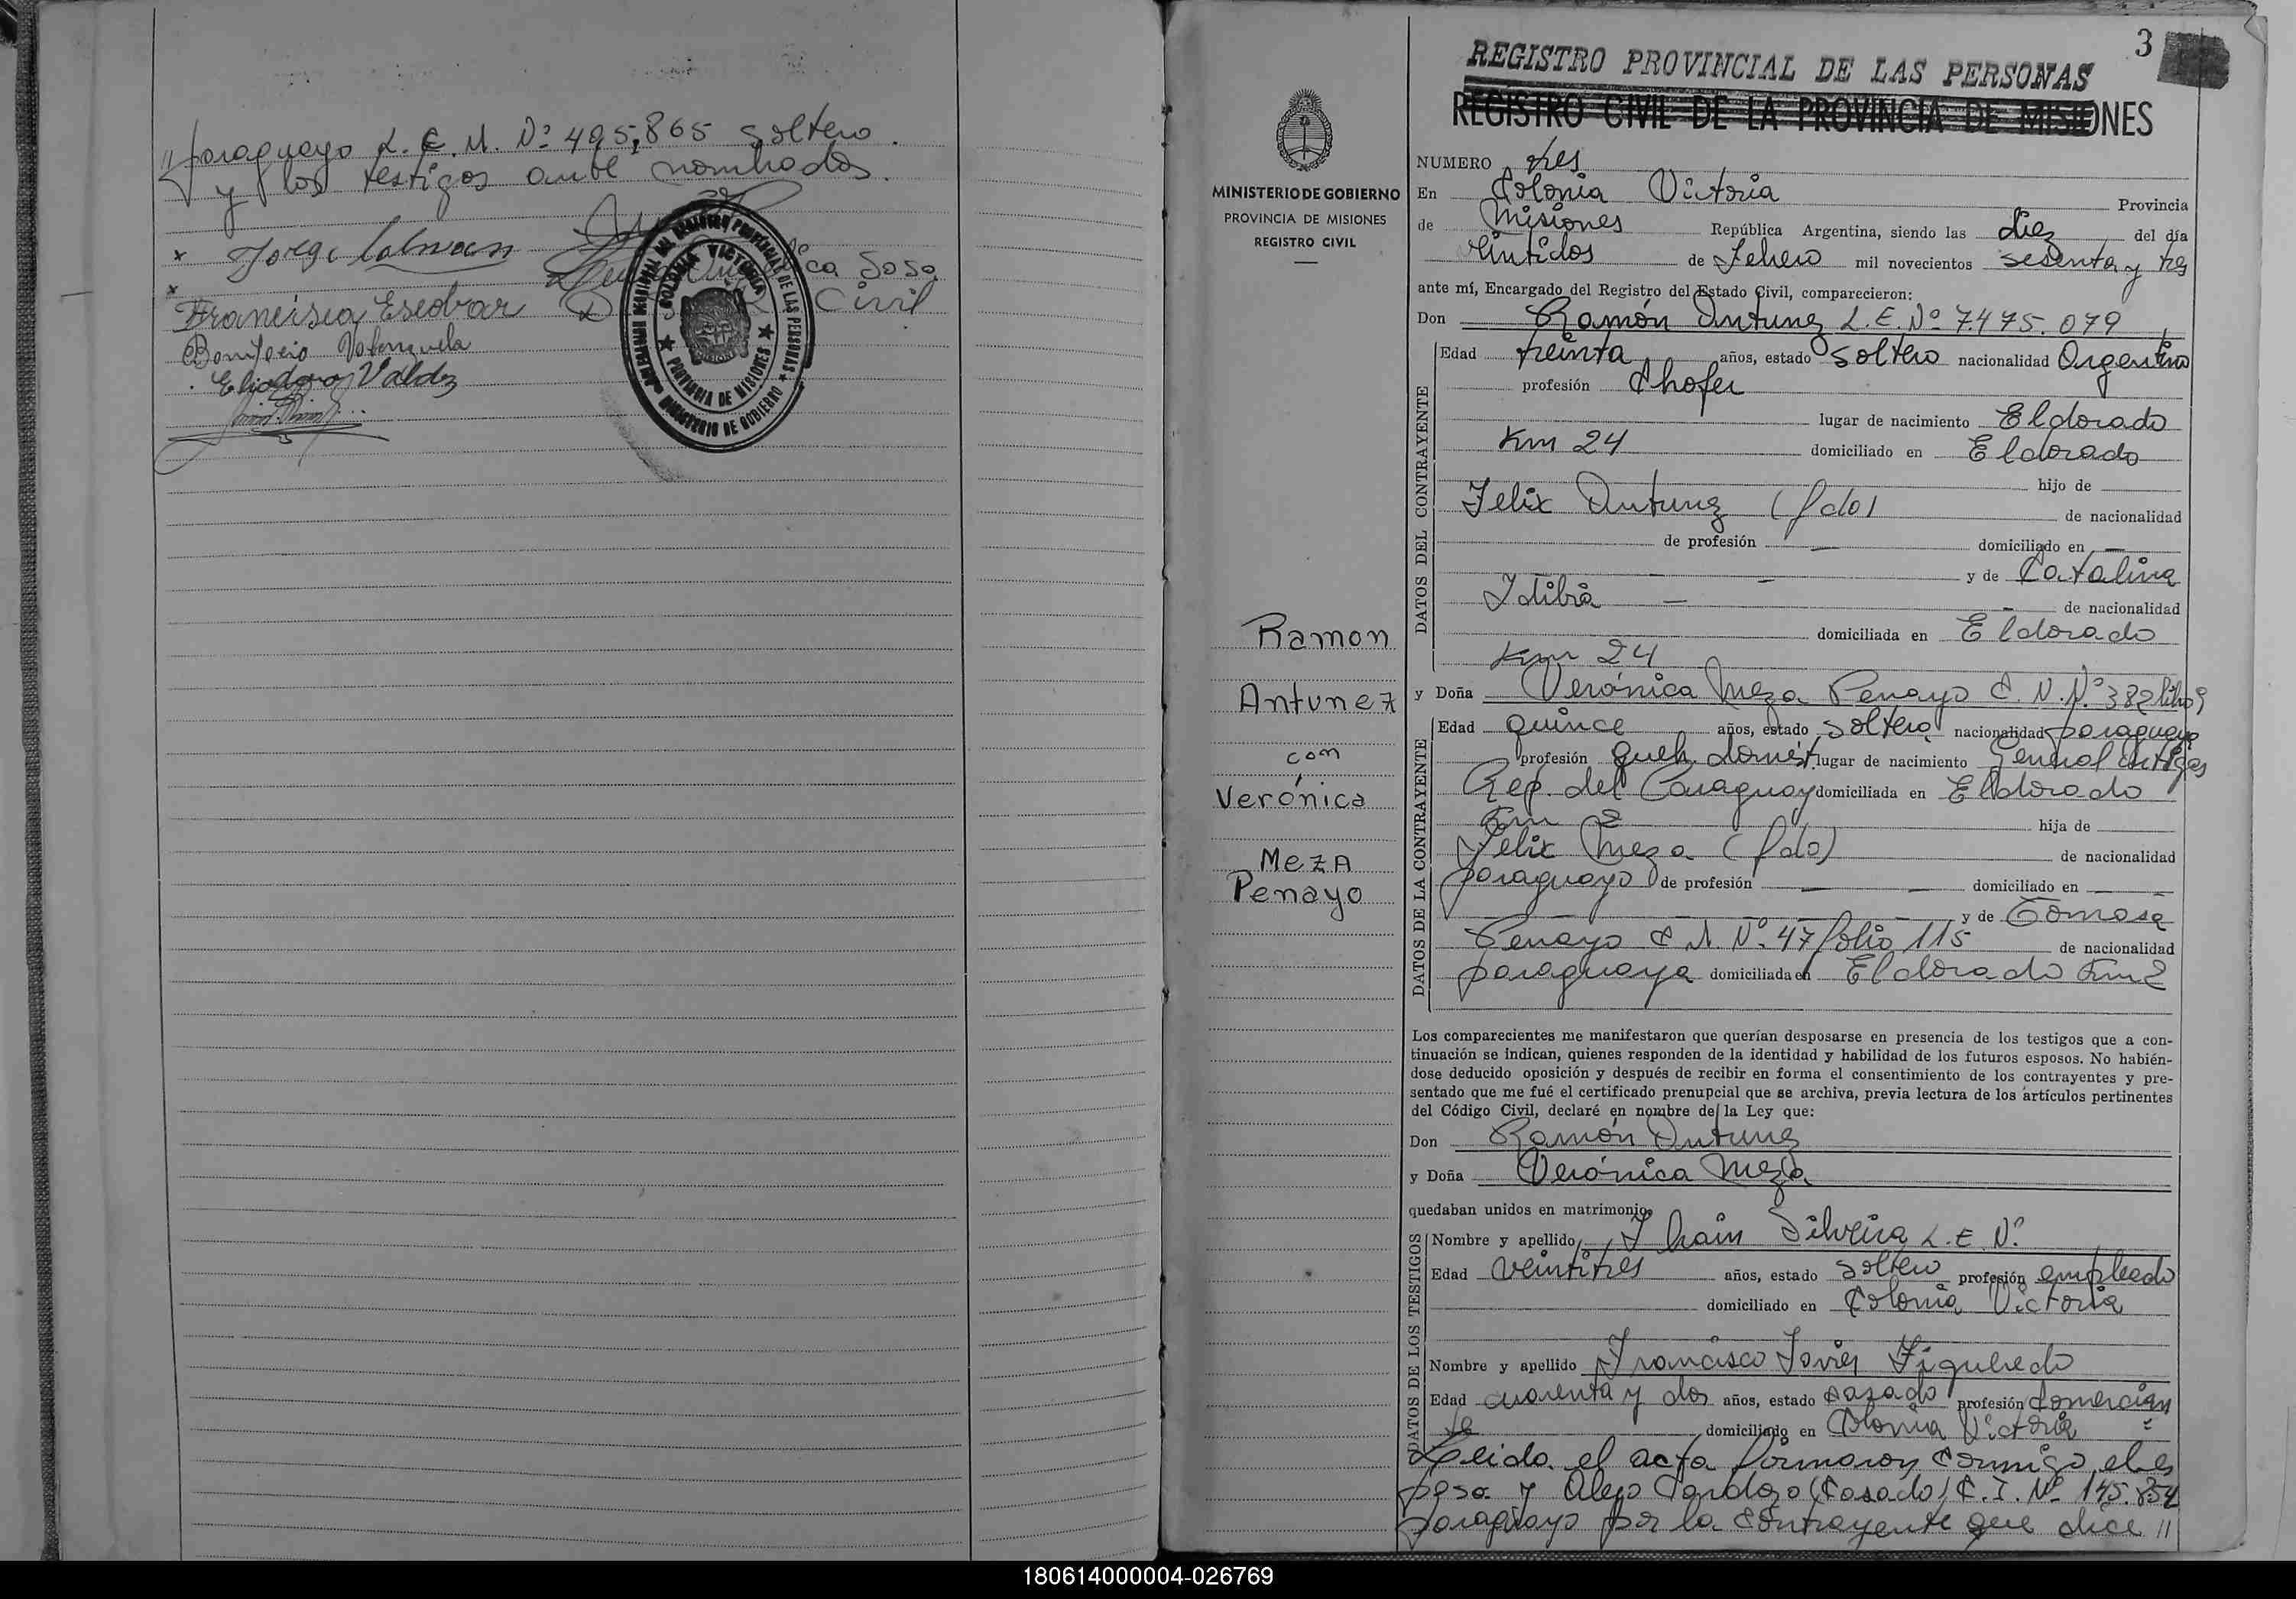 "paraguayo L. E. M. Nº 495,865 soltero.
y los testigos ante nombrados.
Jorge
ca Sosa
Francisca Escobar
D Civil
Bonifacio Valenzuela
Eliodoro Valdez
COLONIA VICTORIA
PROVINCIA DE MISIONES
MINISTERIO DE GOBIERNO
3
REGISTRO PROVINCIAL DE LAS PERSONAS
REGISTRO CIVIL DE LA PROVINCIA DE MISIONES
MINISTERIO DE GOBIERNO
PROVINCIA DE MISIONES
REGISTRO CIVIL
NUMERO tres
En Colonia Victoria Provincia
de Misiones República Argentina, siendo las diez del día
veintidos de Febrero mil novecientos sesenta y tres
ante mí, Encargado del Registro del Estado Civil, comparecieron:
Don Ramón Antunez L.E. Nº 7.475.079
DATOS DEL CONTRAYENTE
Edad treinta años, estado soltero nacionalidad Argentino
profesión Chofer
lugar de nacimiento Eldorado
Km 24 domiciliado en Eldorado
hijo de
Felix Antunez (fdo) de nacionalidad
de profesión — domiciliado en —
— — y de Catalina
Idibia — — de nacionalidad
domiciliada en Eldorado
Km 24
Ramon
Antunez
con
Verónica
Meza
Penayo
y Doña Verónica Meza Penayo C. N. Nº 382 libro 9
DATOS DE LA CONTRAYENTE
Edad quince años, estado soltera nacionalidad paraguaya
profesión queh. domést. lugar de nacimiento General Artigas
Rep. del Paraguay domiciliada en Eldorado
Km 2 hija de
Felix Meza (fdo) de nacionalidad
paraguayo de profesión — — domiciliado en —
— — — y de Tomasa
Penayo C N Nº 47 folio 115 de nacionalidad
paraguaya domiciliada en Eldorado Km 2
Los comparecientes me manifestaron que querían desposarse en presencia de los testigos que a con-
tinuación se indican, quienes responden de la identidad y habilidad de los futuros esposos. No habién-
dose deducido oposición y después de recibir en forma el consentimiento de los contrayentes y pre-
sentado que me fué el certificado prenupcial que se archiva, previa lectura de los artículos pertinentes
del Código Civil, declaré en nombre de la Ley que:
Don Ramón Antunez
y Doña Verónica Meza
quedaban unidos en matrimonio.
DATOS DE LOS TESTIGOS
Nombre y apellido Silveira L. E. Nº
Edad veintitres años, estado soltero profesión empleado
domiciliado en Colonia Victoria
Nombre y apellido Francisco Javier Figueredo
Edad cuarenta y dos años, estado casado profesión comercian
te domiciliado en Colonia Victoria
Leida el acta firmaron conmigo, el es
poso y Alejo Cardozo (Casado) C. I. Nº 145.854
paraguayo por la contrayente que dice //
180614000004-026769